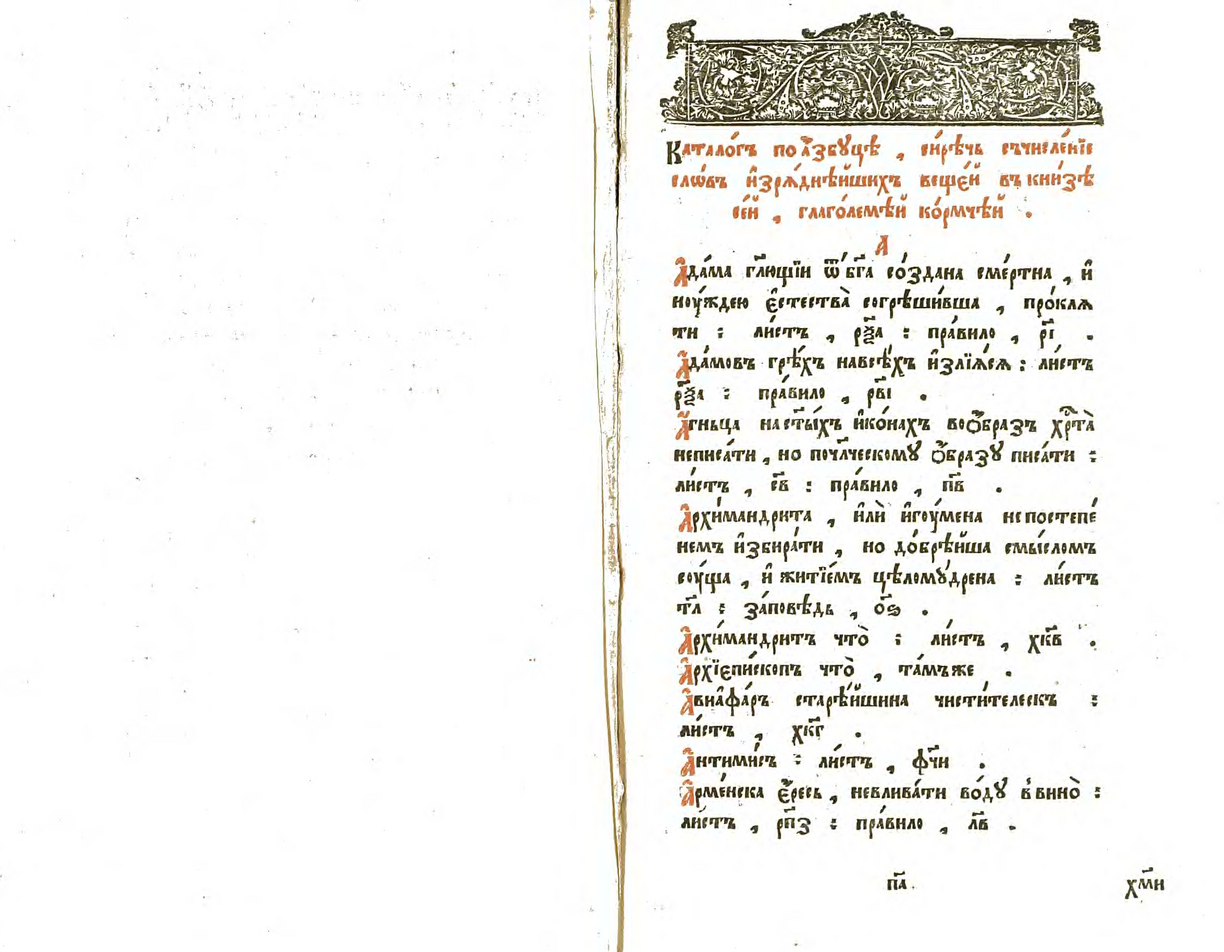 Каталогъ по а҆́збꙋцѣ , си́рѣчь съчисле́нїе
слѡ́въ и҆зрѧ́днѣйшихъ веще́й въ кни́зѣ
се́й , глаго́лемѣй ко́рмчѣй .
А
А҆да́ма гл҃ющїи ѿ бг҃а со́здана сме́ртна , и҆
ноу́ждею є҆стества̀ согрѣши́вша , про́клѧ
ти : ли́стъ , рѯ҃а : пра́вило , рі҃ .
А҆да́мовъ грѣ́хъ на все́хъ и҆злїѧ́сѧ : ли́стъ
рѯ҃а : пра́вило , рв҃і .
А҆́гньца на ст҃ы́хъ и҆ко́нахъ во ѻ҆́бразъ хр҇та̀
не писа́ти , но по чл҃ческомꙋ ѻ҆́бразꙋ писа́ти :
ли́стъ , с҃в : пра́вило , п҃в .
А҆рхи́мандрита , и҆лѝ и҆гоу́мена не по степе́
немъ и҆збира́ти , но до́брѣйша смы́сломъ
соу́ща , и҆ житїе́мъ цѣломꙋ́дрена : ли́стъ
т҃л : за́повѣдь , о҃ѕ .
А҆рхи́мандритъ что̀ : ли́стъ , хк҃в .
А҆рхїепи́скопъ что̀ , та́мъже .
А҆виа҆фа́ръ старѣ́йшина чисти́телескъ :
ли́стъ , хк҃г .
А҆нтими́съ : ли́стъ , фч҃и .
А҆рме́нска є҆́ресь , не влива́ти во́дꙋ в̾ вино̀ :
ли́стъ , рп҃з : пра́вило , л҃в .
п҃а .
хм҃и